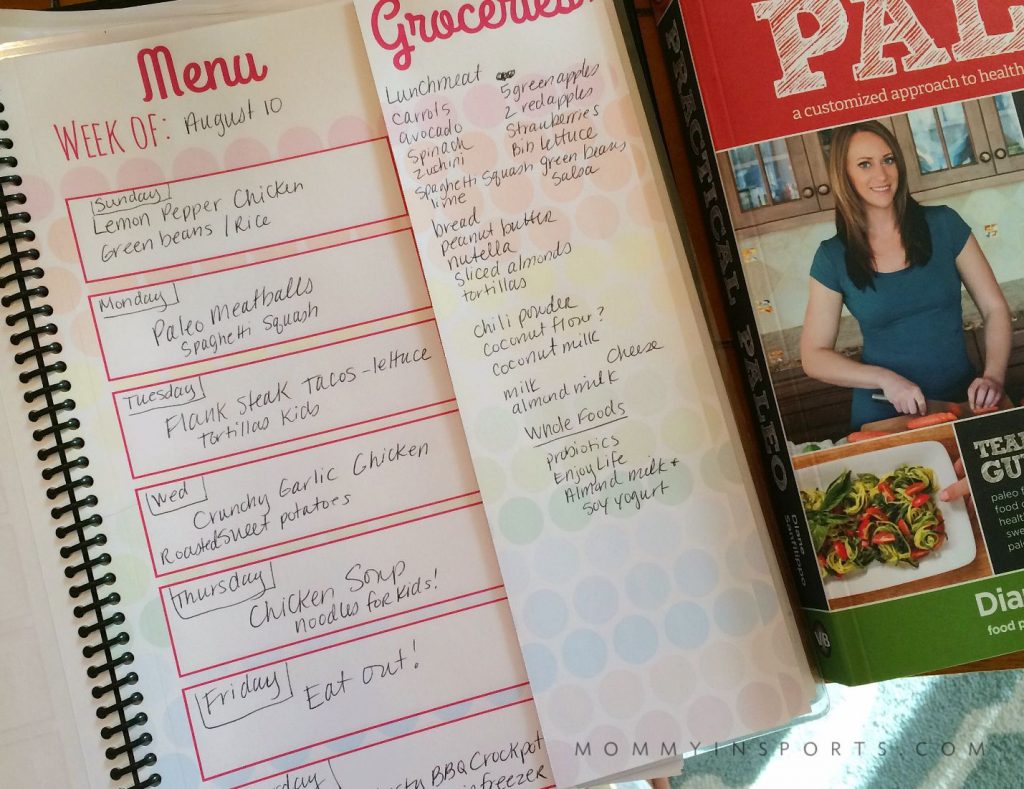 Menu
WEEK OF: August 10
Sunday
Lemon Pepper Chicken
Green beans / Rice
Monday
Paleo Meatballs
Spaghetti Squash
Tuesday
Flank Steak Tacos - lettuce
Tortillas Kids
Wed
Crunchy Garlic Chicken
Roasted Sweet potatoes
Thursday
Chicken Soup
noodles for kids!
Friday
Eat out!
BBQ Crockpot
freezer
Groceries
Lunchmeat
carrots
avocado
Spinach
zuchini
Spaghetti Squash
lime
5 green apples
2 red apples
Strawberries
Bib lettuce
green beans
Salsa
bread
peanut butter
nutella
sliced almonds
tortillas
chili powder
coconut flour?
coconut milk
Cheese
milk
almond milk
Whole Foods
probiotics
Enjoy Life
Almond milk +
Soy yogurt
PRACTICAL PALEO
Diane
Sanfilippo
PAL
a customized approach to health
paleo
food
Dia
food p
MOMMYINSPORTS.COM